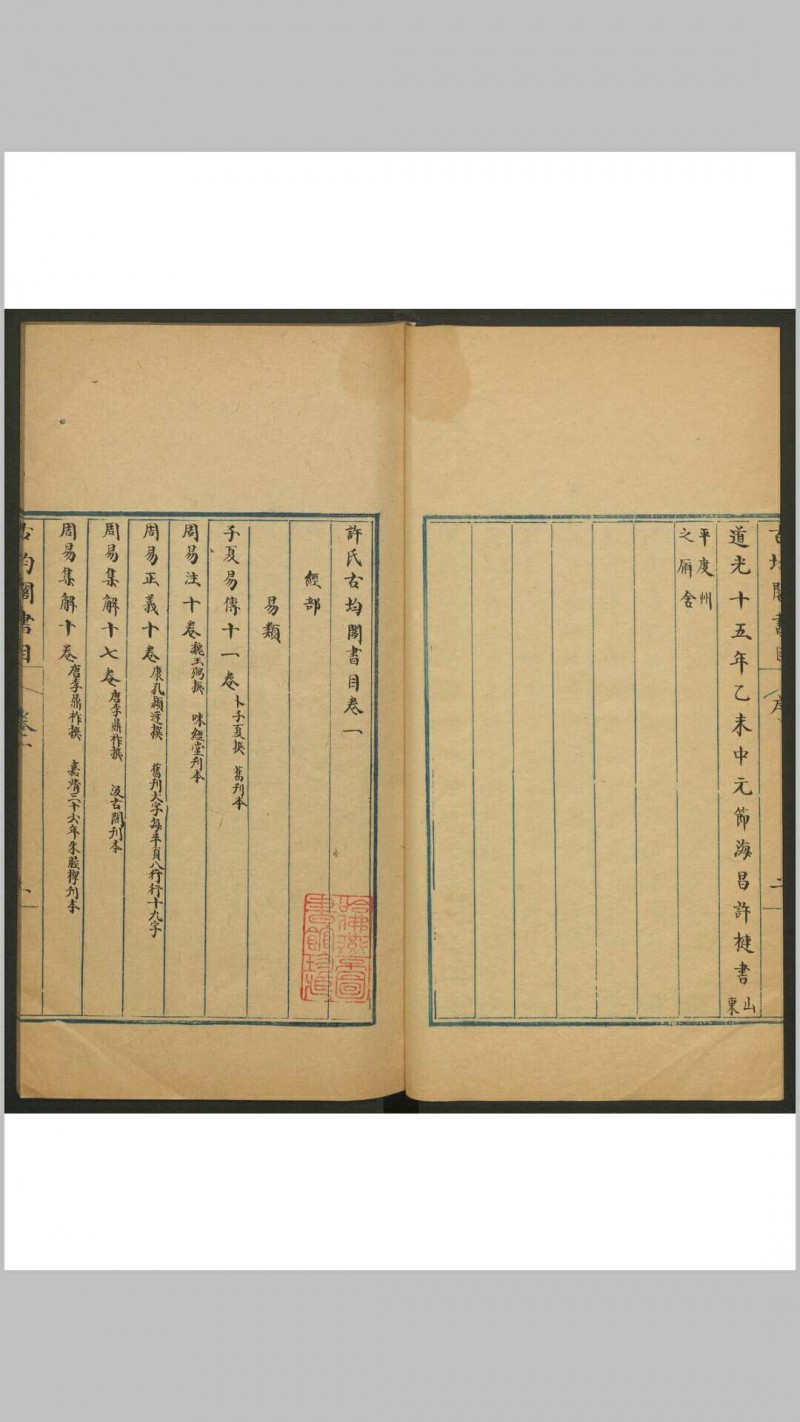 道光十五年乙未中元節海昌許槤書山東
平度州之廨舍
許氏古均閣書目卷一
經部
易類
子夏易傳十一卷 卜子夏撰 舊刊本
周易注十卷 魏王弼撰 味經堂刊本
周易正義十卷 唐孔穎達撰 舊刊大字每半頁八行行十九字
周易集解十七卷 唐李鼎祚撰 汲古閣刊本
周易集解十卷 唐李鼎祚撰 嘉靖三十六年朱睦㮮刊本
古均閣書目 卷一
哈佛燕京圖書館珍藏